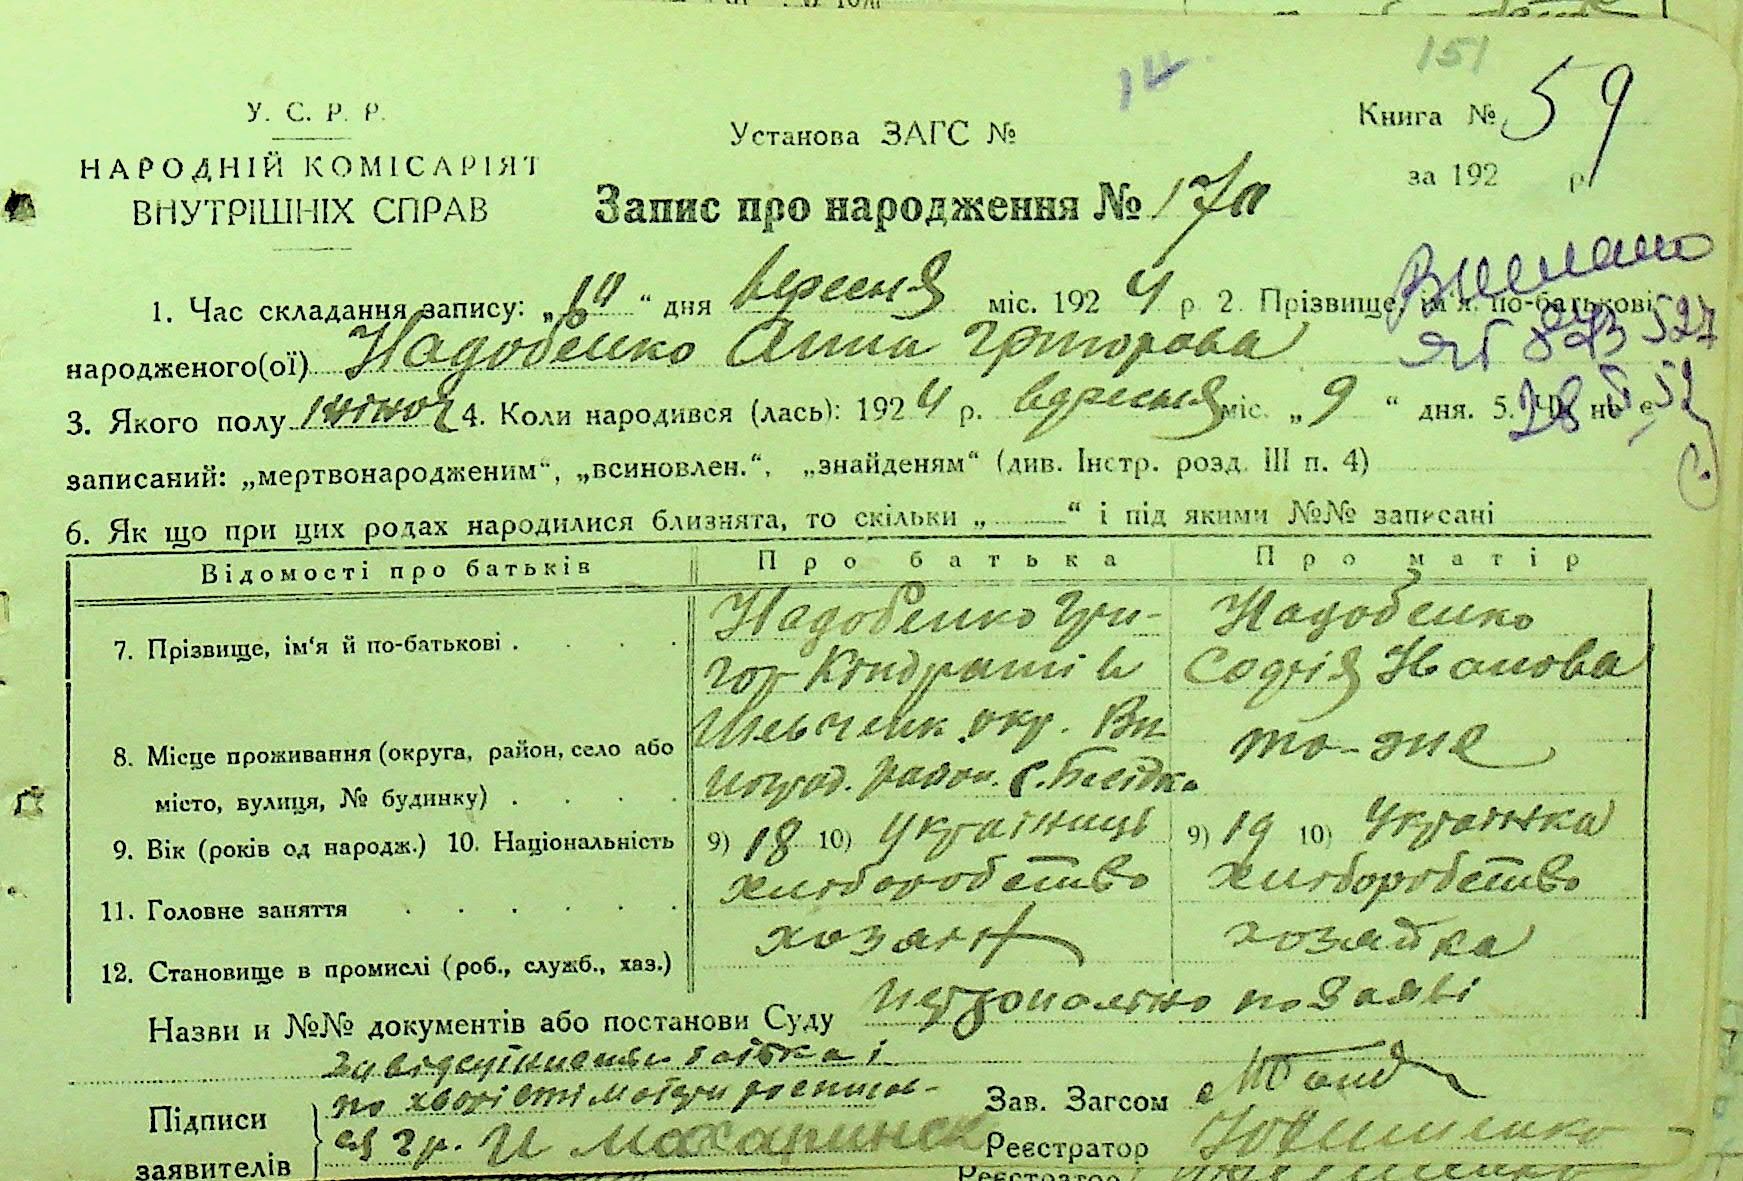 151
14
У. С. Р. Р.
НАРОДНІЙ КОМІСАРІЯТ
ВНУТРІШНІХ СПРАВ
Установа ЗАГС №
Книга № 59
за 192 р.
Запис про народження № 17а
1. Час складання запису: „10“ дня вересня міс. 1924 р. 2. Прізвище, ім'я, по-батькові
народженого(ої) Надобенко Анна Григорова
3. Якого полу жіноч 4. Коли народився (лась): 1924 р. вересня міс. „9“ дня. 5. Чи не є
записаний: „мертвонародженим“, „всиновлен.“, „знайденям“ (див. Інстр. розд. III п. 4)
6. Як що при цих родах народилися близнята, то скільки „ “ і під якими №№ записані
Відомості про батьків Про батька Про матір
7. Прізвище, ім'я й по-батькові Надобенко Гри- Надобенко
гор Кондратів Софія Іванова
8. Місце проживання (округа, район, село або Шевченк. окр. Ви то-же
місто, вулиця, № будинку) район. с.
9. Вік (років од народж.) 10. Національність 9) 18 10) Українець 9) 19 10) Українка
11. Головне заняття хліборобство хліборобство
12. Становище в промислі (роб., служб., хаз.) хозяін хозяйка
Назви и №№ документів або постанови Суду по заяві
За відсутністю батька і
Підписи по хворісті матери росписав-
заявителів ся гр. И Махаринск
Зав. Загсом
Реєстратор
Реєстратор
ЯГ 527